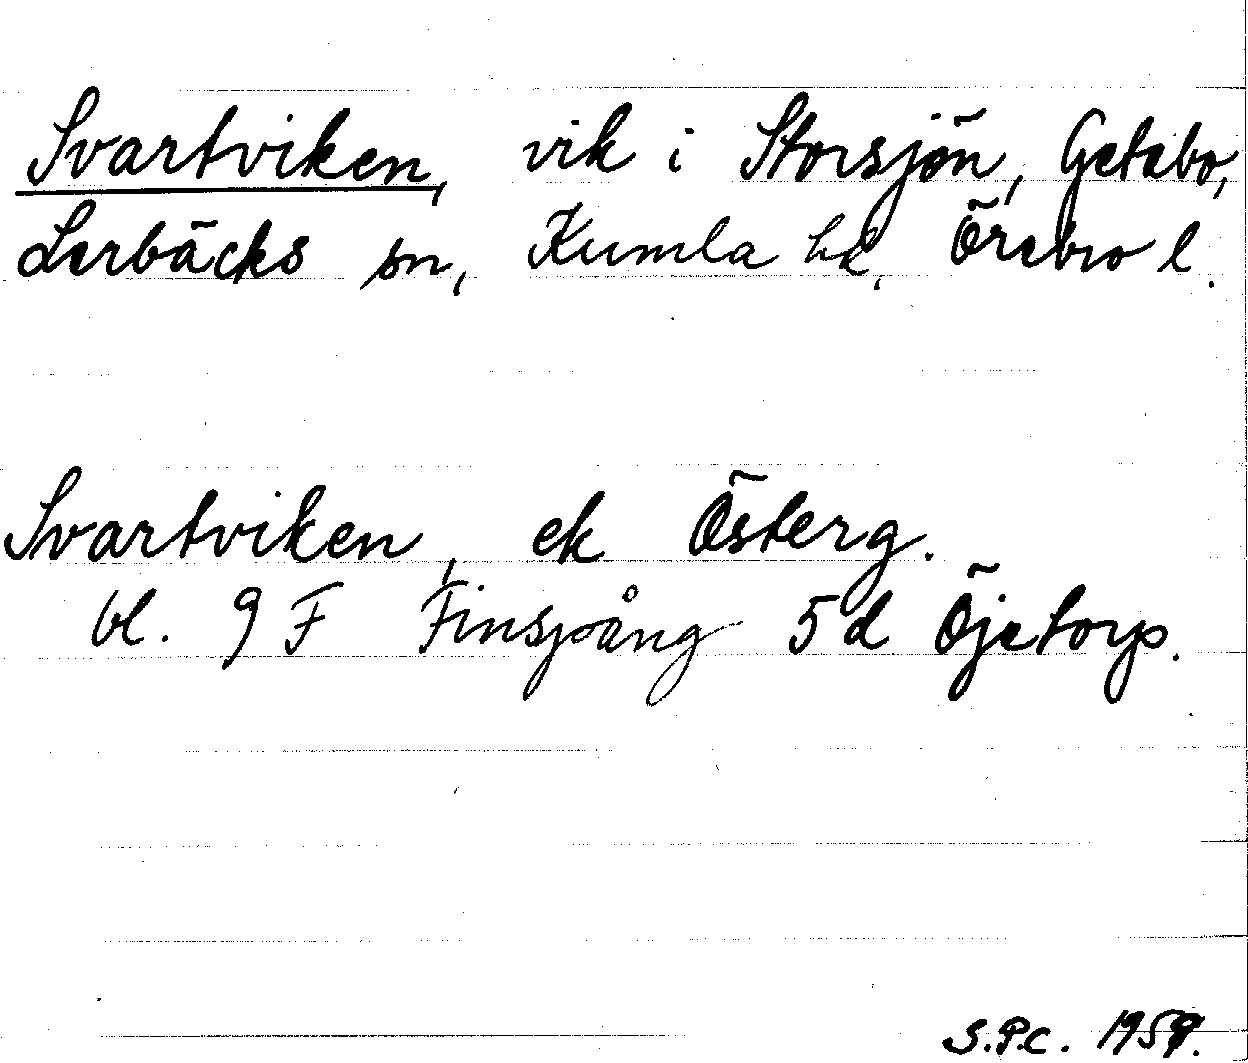 Svartviken, vik i Storsjön, Getabo,
Lerbäcks sn, Kumla hd, Örebro l.
Svartviken, ek Österg.
bl. 9 F Finspång 5 d Öjetorp.
S.P.C. 1959.